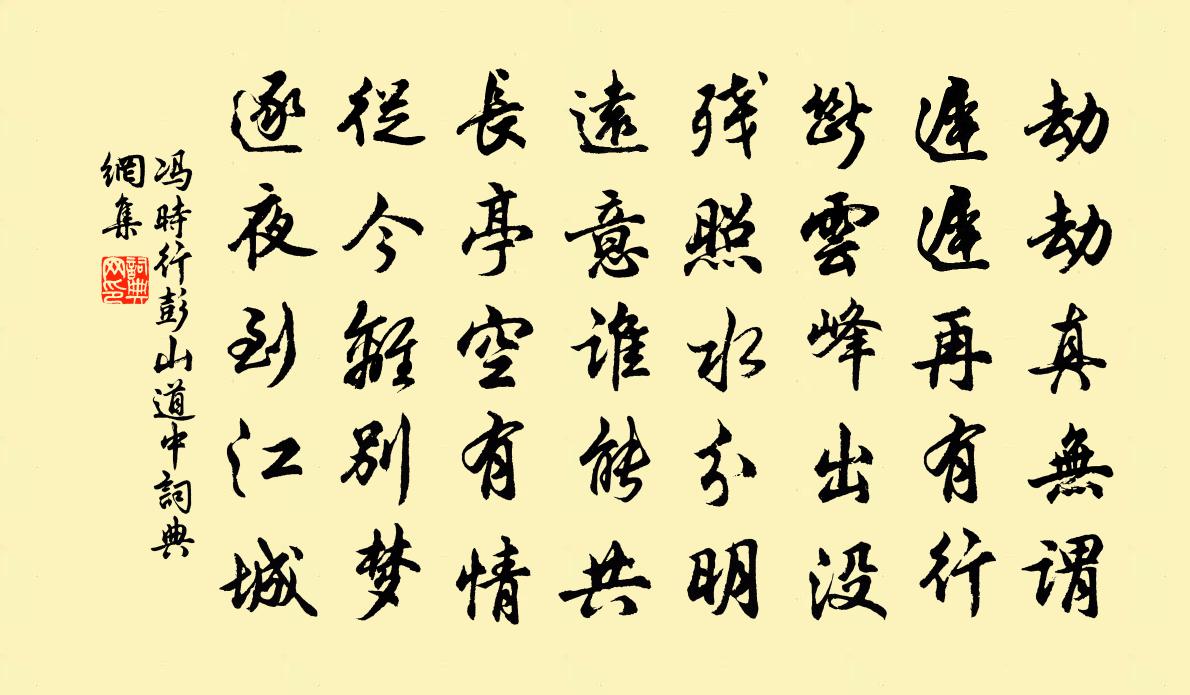 劫劫真無謂
遲遲再有行
斷雲峰出没
残照水分明
遠意誰能共
長亭空有情
從今離別梦
逐夜到江城
冯時行彭山道中詞典
網集
詞典网印